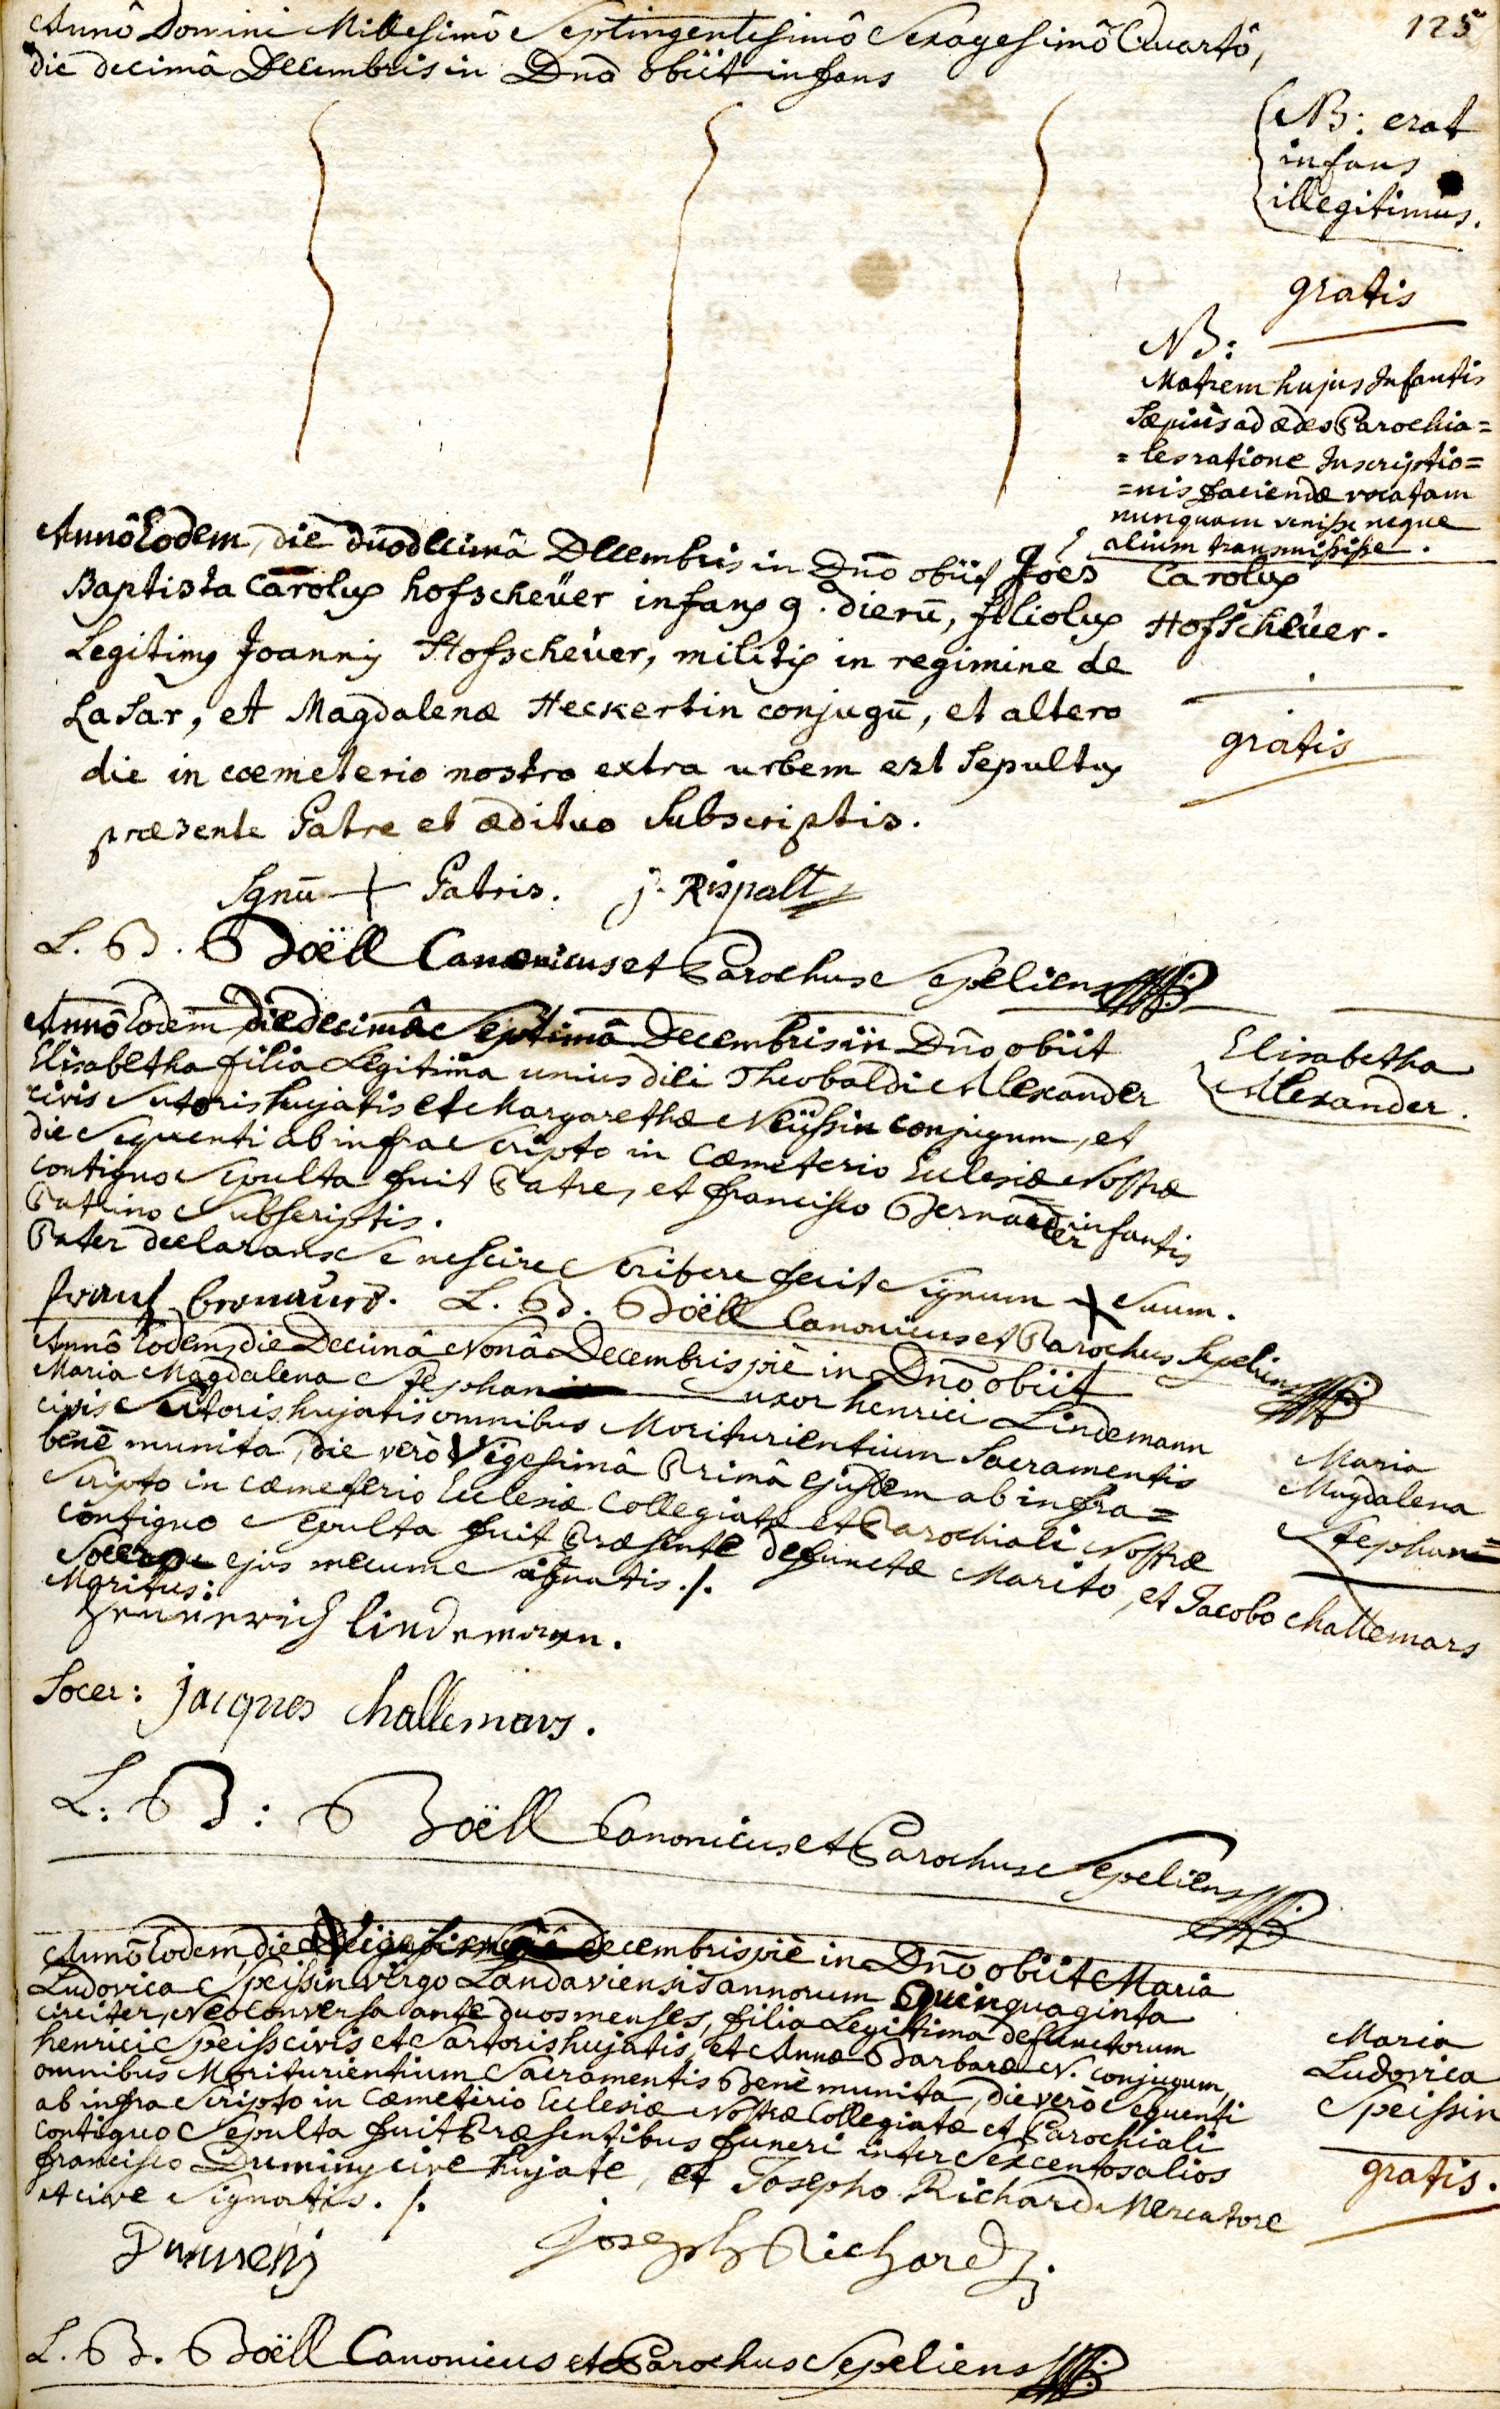 125
Annô Domini Millesimô Septingentesimô Sexagesimô Quartô,
die decimâ Decembris in Dno obiit infans
NB: erat
infans
illegitimus.
gratis
NB:
Matrem hujus Infantis
Sæpius ad ædes Parochia=
=les ratione Inscriptio=
=nis faciendæ vocatam
nunquam venisse neque
alium transmisisse.
Annô Eodem, die duodecimâ Decembris in Dno obiit Joes
Baptista Carolus hofscheüer infans 9. dierū, filiolus
Legitimus Joannis Hofscheüer, militis in regimine de
LaSar, et Magdalenæ Heckertin conjugū, et altero
die in cœmeterio nostro extra urbem est Sepultus
præsente Patre et ædituo Subscriptis.
Carolus
Hofscheüer.
gratis
Signū + Patris. J. Rispalt
L. B. Boëll Canonicus et Parochus Sepeliens
Annô Eodem die decimâ Septimâ Decembris in Dno obiit
Elisabetha filia Legitima unius diei Theobaldi Alexander
civis Sutoris hujatis et Margarethæ Neüssin conjugum, et
die Sequenti ab infra Scripto in Cæmeterio Ecclesiæ Nostræ
contiguo Sepulta fuit Patre, et francisco infantis
Patrino Subscriptis.
Pater declarans Se nescire Scribere fecit Signum + Suum.
Elisabetha
Alexander.
L. B. Boëll Canonicus et Parochus Sepeliens
Annô Eodem, die Decimâ Nonâ Decembris piè in Dno obiit
Maria Magdalena Stephan uxor henrici Lindemann
civis Sutoris hujatis omnibus Moriturientium Sacramentis
benè munita, die verò Vigesimâ Primâ ejusdem ab infra=
Scripto in Cæmeterio Ecclesiæ Collegiatæ et Parochiali Nostræ
contiguo Sepulta fuit Præsente defunctæ Marito, et Jacobo Challemars
Socero ejus mecum Signatis./.
Maria
Magdalena
Stephan=
Maritus:
Hennerich lindemann.
Socer: jacques challemars.
L: B: Boëll Canonicus et Parochus Sepeliens
Annô Eodem, die decembris piè in Dno obiit Maria
Ludovica Speissin virgo Landaviensis annorum Quinquaginta
circiter, Neoconversa ante duos menses, filia Legitima defunctorum
henrici Speiss civis et Sartoris hujatis, et Annæ Barbaræ N. conjugum,
omnibus Moriturientium Sacramentis Benè munita, die verò Sequenti
ab infra Scripto in Cæmeterio Ecclesiæ Nostræ Collegiatæ et Parochiali
contiguo Sepulta fuit Præsentibus funeri inter Sexcentos alios
francisco Duminy cive hujate, et Josepho Richard Mercatore
et cive Signatis./.
Maria
Ludovica
Speissin
gratis.
Joseph Richard
L. B. Boëll Canonicus et Parochus Sepeliens